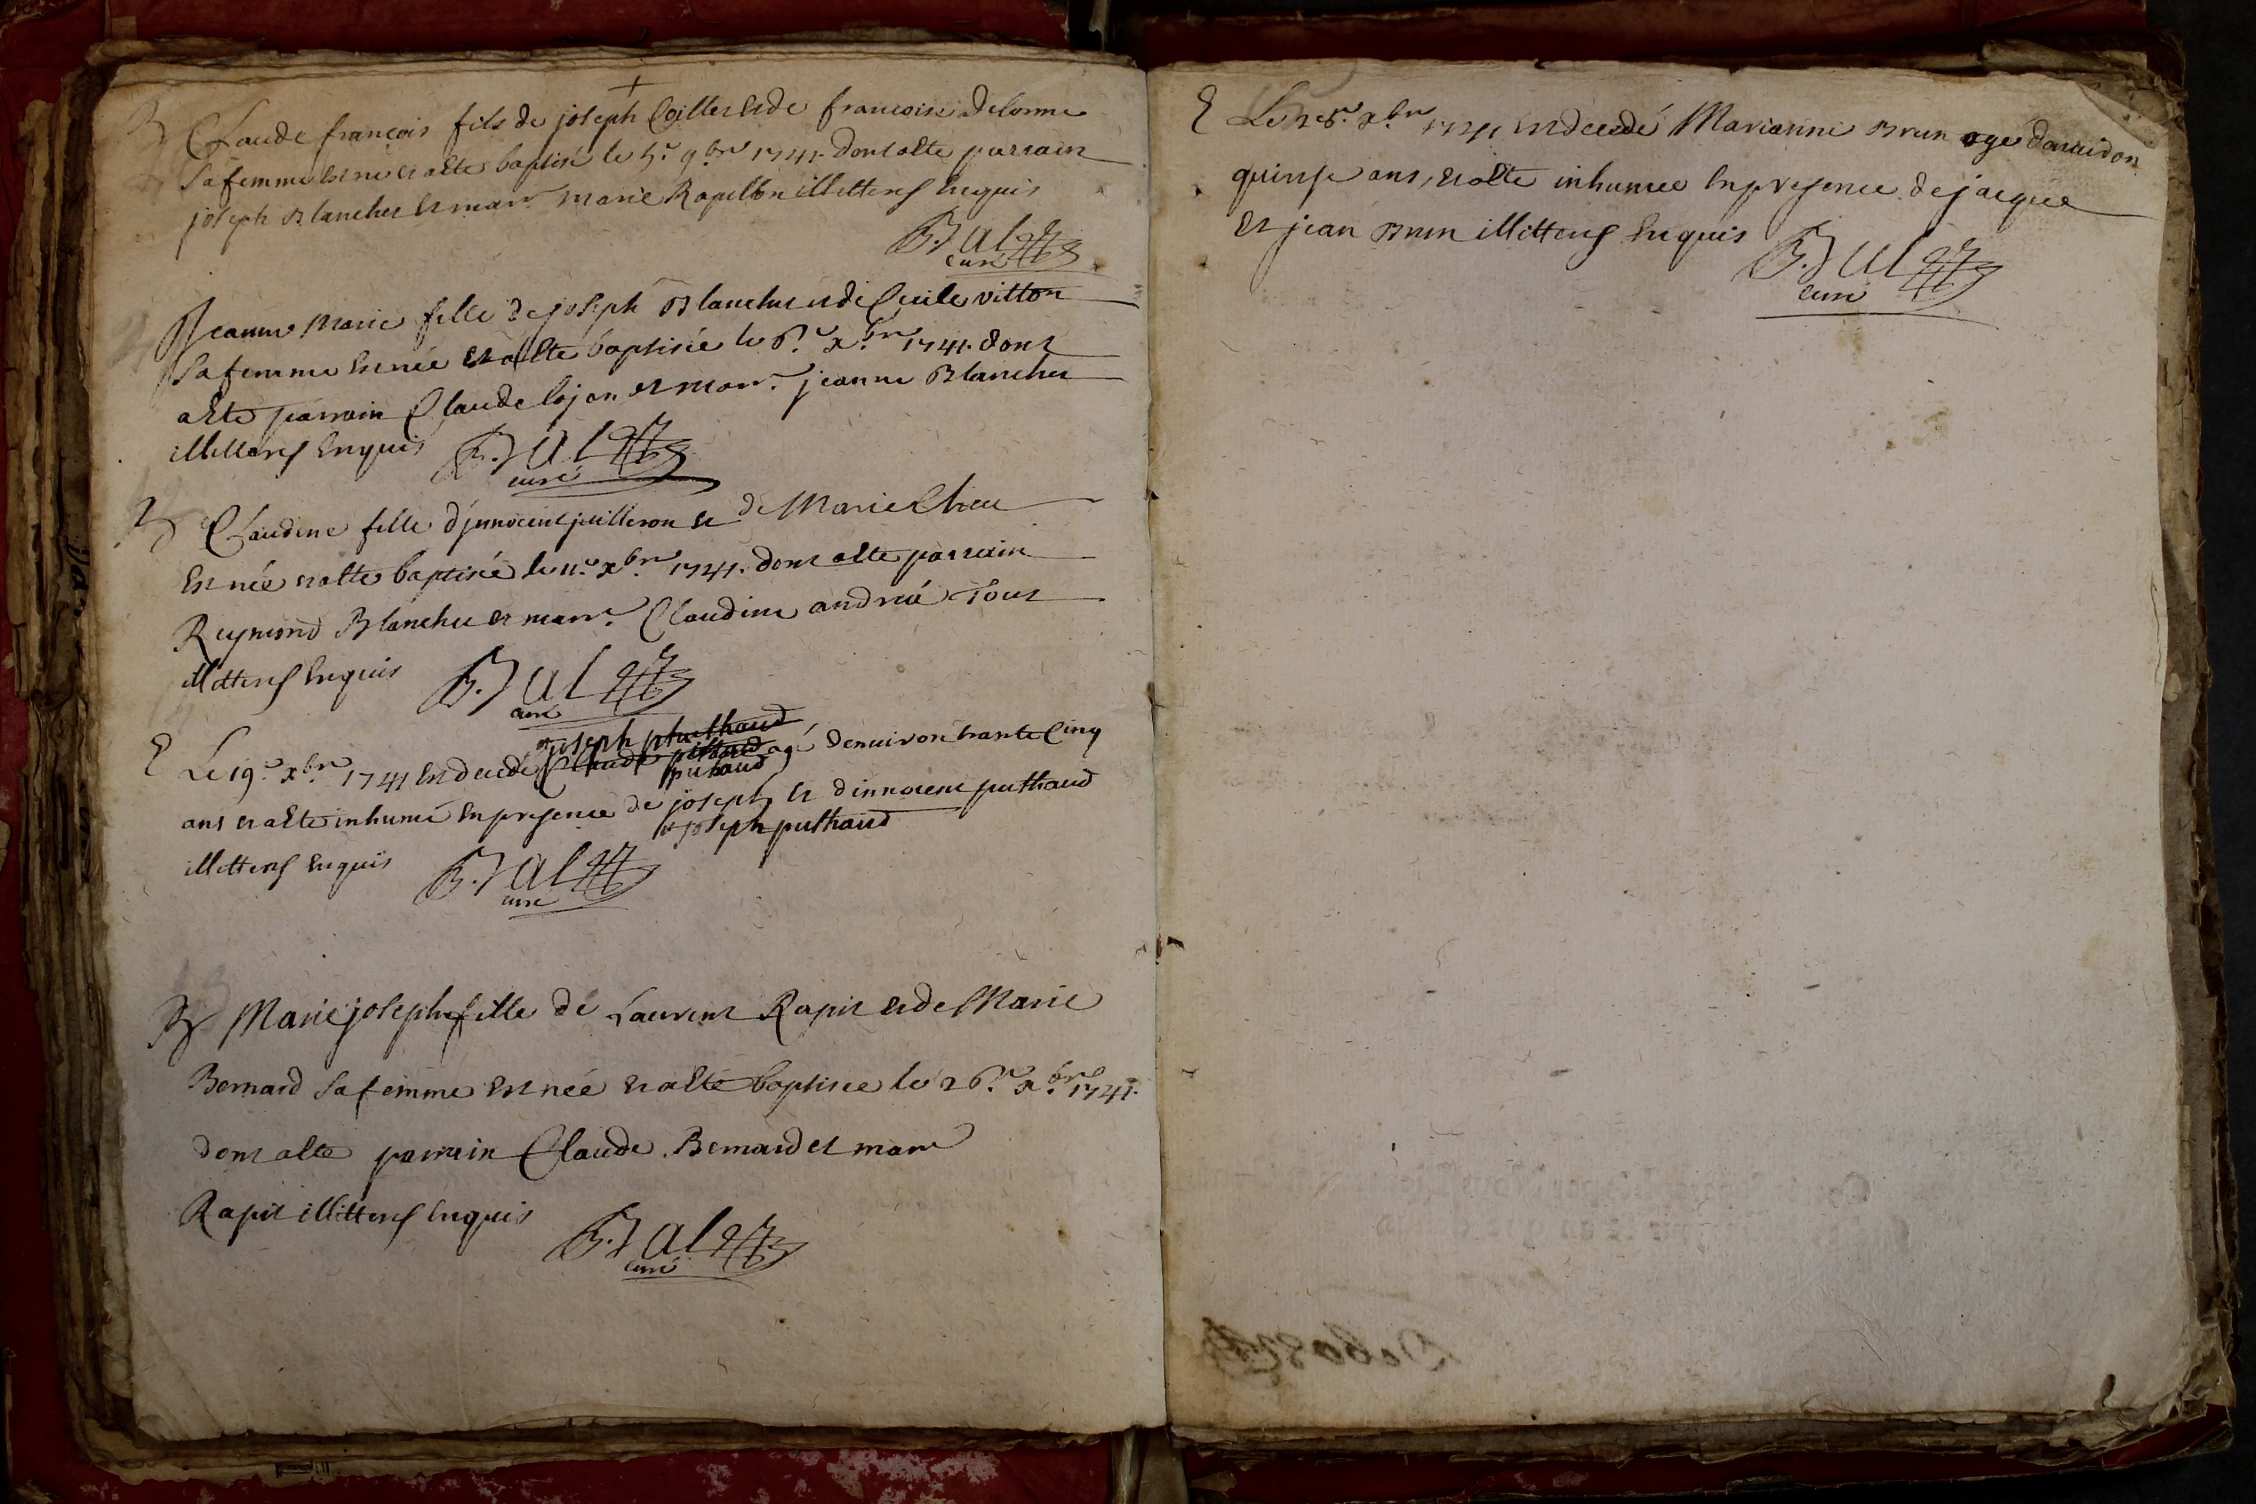 +
B Claude françois fils de joseph Cailler et de francoise Delorme
sa femme est né et a ete baptisé le 5e 9bre 1741. dont a ete parrain
joseph Blanchet et marr. marie Rapillon illitterés enquis
B. Jal
curé
Jeanne Marie fille de joseph Blanchet et de Cecile vitton
sa femme est née et a ete baptisée le 6e xbre 1741. dont
a ete parrain Claude lojon et marr. jeanne Blanchet
illitterés enquis B. Jal
curé
B Claudine fille d'jnnocent juilleron et de Marie Chieu
est née et a ete baptisée le 11e xbre 1741. dont a ete parrain
Reymond Blanchet et marr. Claudine andréé tous
illitterés enquis B. Jal
curé
joseph puthaud
E Le 19e xbre 1741 est decedé Claude puthaud agé d'enuiron trante Cinq
puthaud
ans et a ete inhumé en presence de joseph et d'innocent puthaud
et joseph puthaud
illitterés enquis B. Jal
curé
B Marie josephe fille de Laurent Rapit et de Marie
Bernard sa femme est née et a eté baptisée le 26e xbre 1741.
dont a ete parrain Claude Bernard et marr
Rapit illitterés enquis B. Jal
curé
E Le 28e xbre 1741 est decedé Marianne Brun agé d'enuiron
quinse ans, et a ete inhumee en presence de jacque
et jean Brun illitterés enquis B. Jal
curé